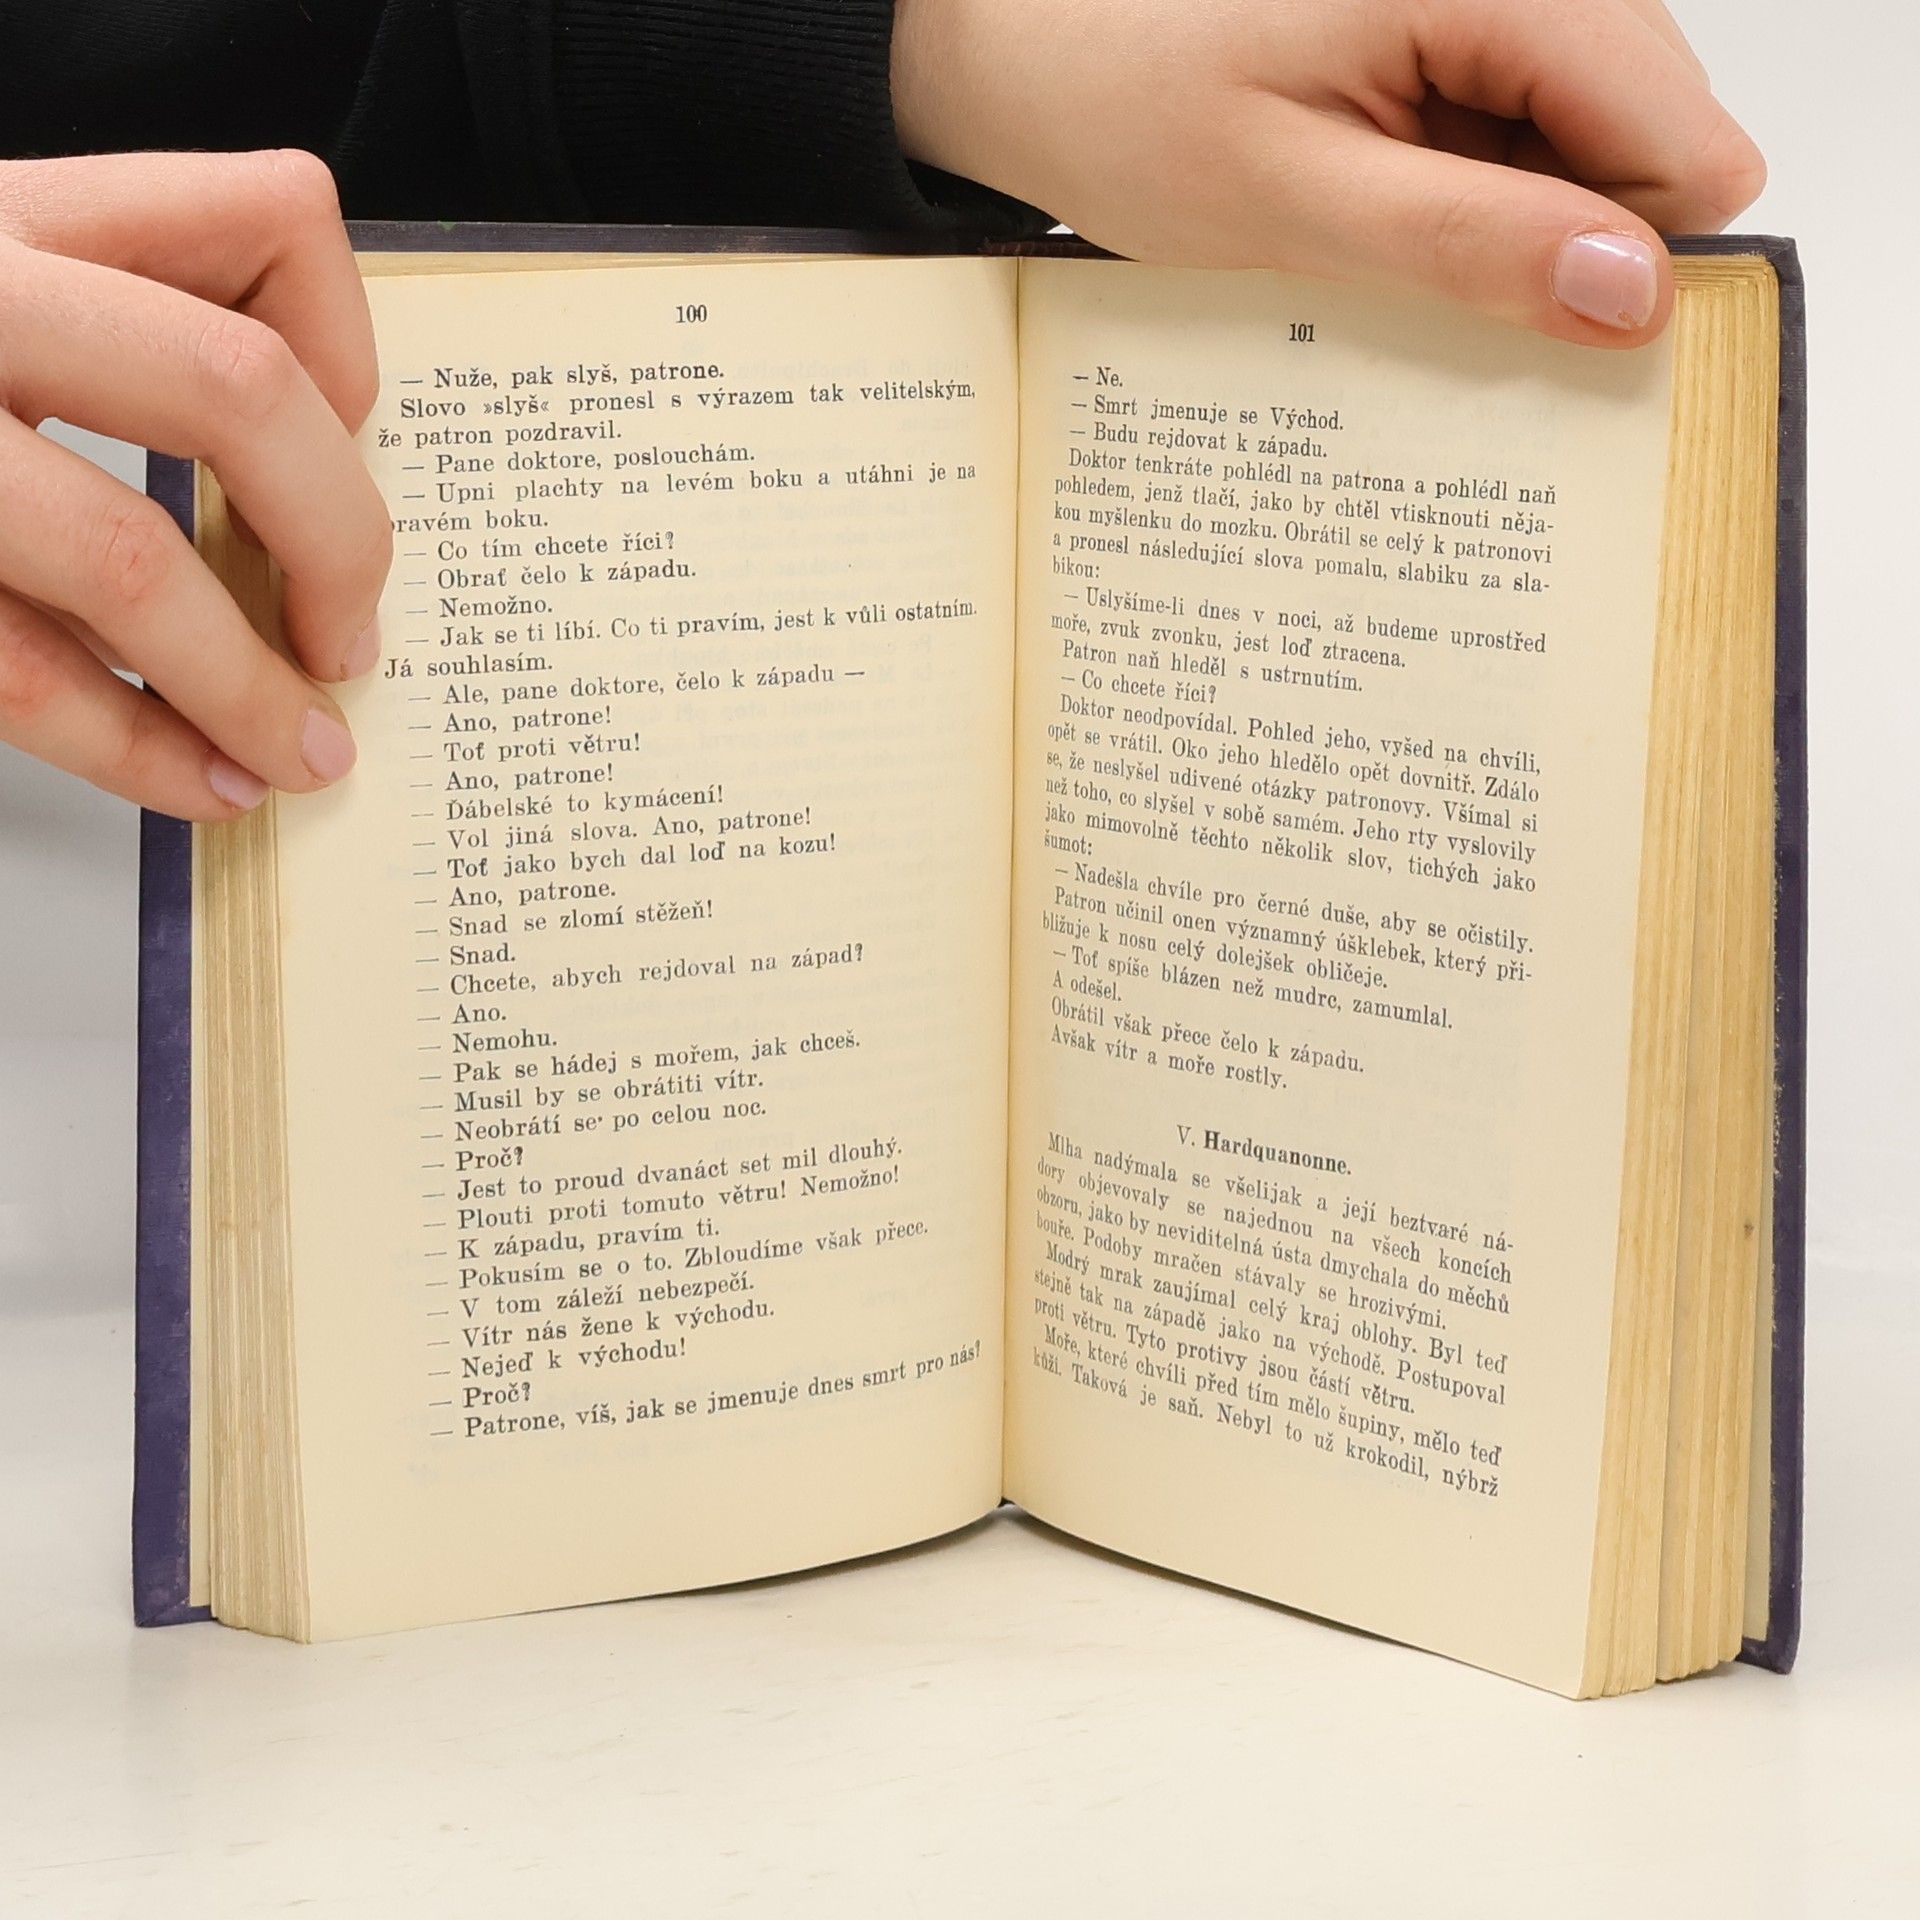 100
— Nuže, pak slyš, patrone.
Slovo »slyš« pronesl s výrazem tak velitelským,
že patron pozdravil.
— Pane doktore, poslouchám.
— Upni plachty na levém boku a utáhni je na
pravém boku.
— Co tím chcete říci?
— Obrať čelo k západu.
— Nemožno.
— Jak se ti líbí. Co ti pravím, jest k vůli ostatním.
Já souhlasím.
— Ale, pane doktore, čelo k západu —
— Ano, patrone!
— Toť proti větru!
— Ano, patrone!
— Ďábelské to kymácení!
— Vol jiná slova. Ano, patrone!
— Toť jako bych dal loď na kozu!
— Ano, patrone.
— Snad se zlomí stěžeň!
— Snad.
— Chcete, abych rejdoval na západ?
— Ano.
— Nemohu.
— Pak se hádej s mořem, jak chceš.
— Musil by se obrátiti vítr.
— Neobrátí se po celou noc.
— Proč?
— Jest to proud dvanáct set mil dlouhý.
— Plouti proti tomuto větru! Nemožno!
— K západu, pravím ti.
— Pokusím se o to. Zbloudíme však přece.
— V tom záleží nebezpečí.
— Vítr nás žene k východu.
— Nejeď k východu!
— Proč?
— Patrone, víš, jak se jmenuje dnes smrt pro nás?
101
— Ne.
— Smrt jmenuje se Východ.
— Budu rejdovat k západu.
Doktor tenkráte pohlédl na patrona a pohlédl naň
pohledem, jenž tlačí, jako by chtěl vtisknouti něja-
kou myšlenku do mozku. Obrátil se celý k patronovi
a pronesl následující slova pomalu, slabiku za sla-
bikou:
— Uslyšíme-li dnes v noci, až budeme uprostřed
moře, zvuk zvonku, jest loď ztracena.
Patron naň hleděl s ustrnutím.
— Co chcete říci?
Doktor neodpovídal. Pohled jeho, vyšed na chvíli,
opět se vrátil. Oko jeho hledělo opět dovnitř. Zdálo
se, že neslyšel udivené otázky patronovy. Všímal si
než toho, co slyšel v sobě samém. Jeho rty vyslovily
jako mimovolně těchto několik slov, tichých jako
šumot:
— Nadešla chvíle pro černé duše, aby se očistily.
Patron učinil onen významný úšklebek, který při-
bližuje k nosu celý dolejšek obličeje.
— Toť spíše blázen než mudrc, zamumlal.
A odešel.
Obrátil však přece čelo k západu.
Avšak vítr a moře rostly.
V. Hardquanonne.
Mlha nadýmala se všelijak a její beztvaré ná-
dory objevovaly se najednou na všech koncích
obzoru, jako by neviditelná ústa dmychala do měchů
bouře. Podoby mračen stávaly se hrozivými.
Modrý mrak zaujímal celý kraj oblohy. Byl teď
stejně tak na západě jako na východě. Postupoval
proti větru. Tyto protivy jsou částí větru.
Moře, které chvíli před tím mělo šupiny, mělo teď
kůži. Taková je saň. Nebyl to už krokodil, nýbrž